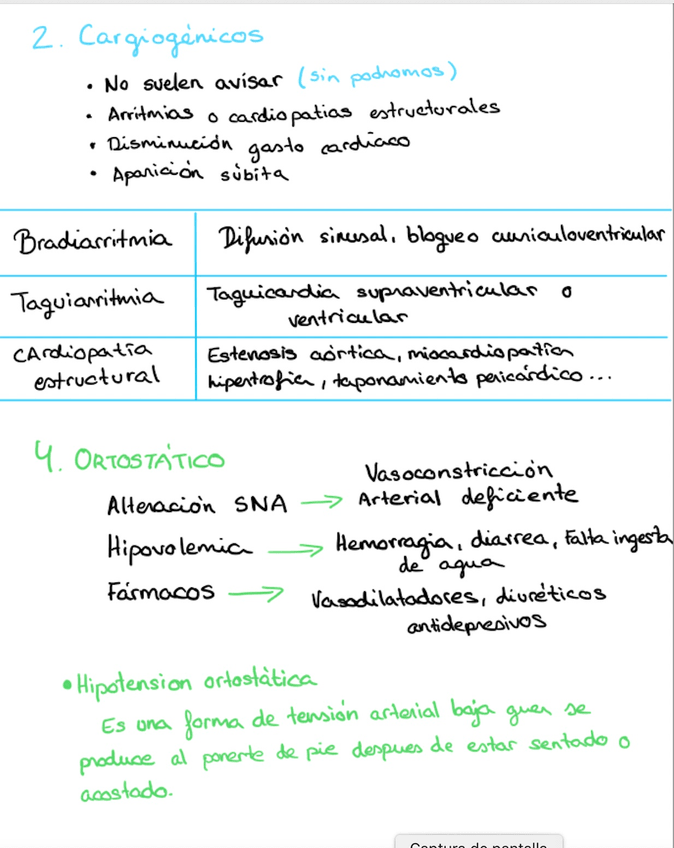 2. Cargiogénicos
• No suelen avisar (sin podromos)
• Arritmias o cardiopatias estructurales
• Disminución gasto cardíaco
• Aparición súbita
Bradiarritmia
Difusión sinusal, bloqueo auriculoventricular
Taquiarritmia
Taquicardia supraventricular o
ventricular
CArdiopatía
estructural
Estenosis aórtica, miocardiopatía
hipertrofica, taponamiento pericárdico...
4. ORTOSTÁTICO
Alteración SNA → Vasoconstricción
Arterial deficiente
Hipovolemia → Hemorragia, diarrea, Falta ingesta
de agua
Fármacos → Vasodilatadores, diuréticos
antidepresivos
• Hipotension ortostática
Es una forma de tensión arterial baja quen se
produce al ponerte de pie despues de estar sentado o
acostado.